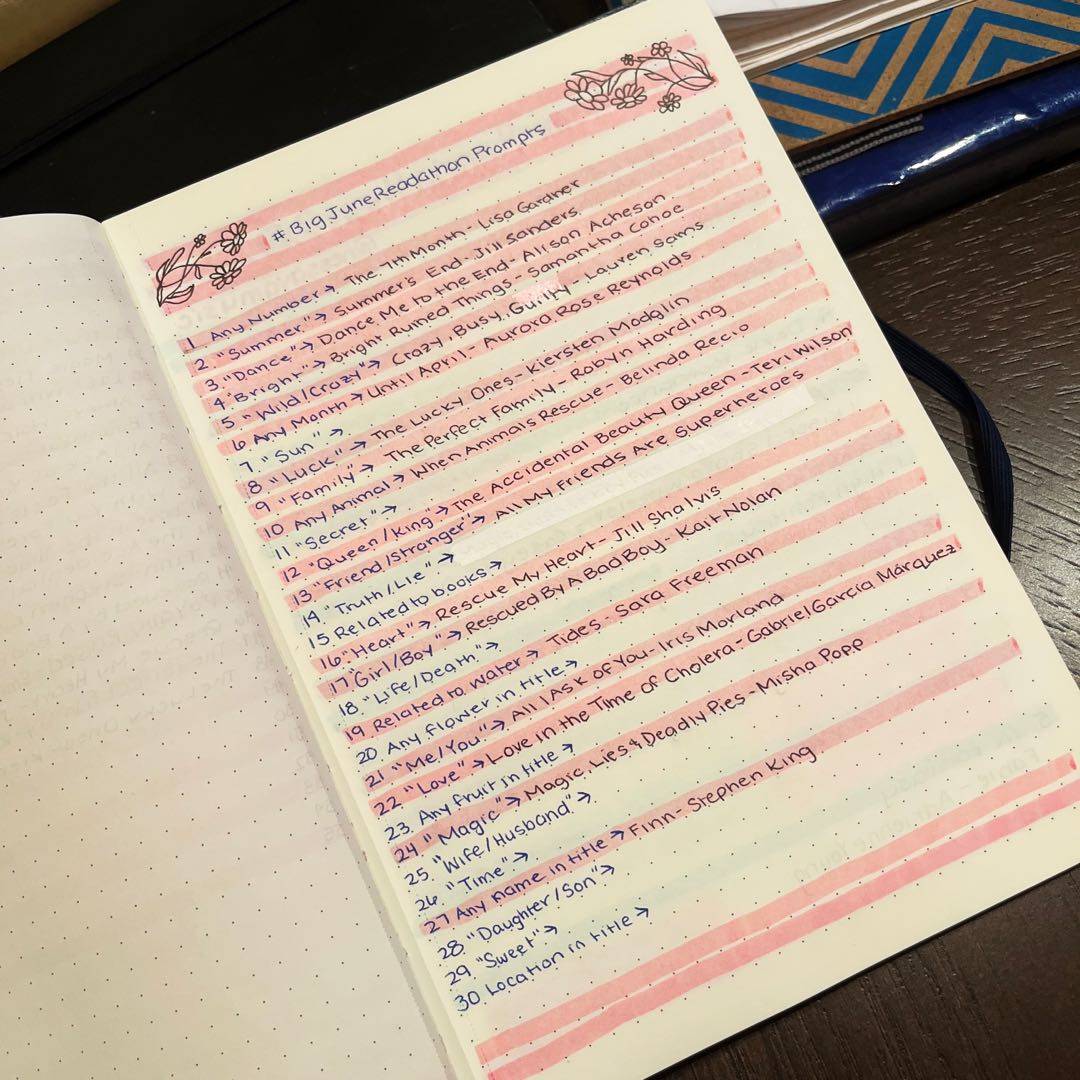 #BigJuneReadathon Prompts
1. Any Number → The 7th Month - Lisa Gardner
2. "Summer" → Summer's End - Jill Sanders
3. "Dance" → Dance Me to the End - Alison Acheson
4. "Bright" → Bright Ruined Things - Samantha Cohoe
5. "Wild/Crazy" → Crazy, Busy, Guilty - Lauren Sams
6 Any Month → Until April - Aurora Rose Reynolds
7. "Sun" →
8 "Luck" → The Lucky Ones - Kiersten Modglin
9 "Family" → The Perfect Family - Robyn Harding
10 Any Animal → When Animals Rescue - Belinda Recio
11 "Secret" →
12 "Queen/King" → The Accidental Beauty Queen - Teri Wilson
13 "Friend/Stranger" → All My Friends Are Superheroes
14. "Truth/Lie" →
15 Related to books →
16 "Heart" → Rescue My Heart - Jill Shalvis
17. "Girl/Boy" → Rescued By A Bad Boy - Kait Nolan
18. "Life/Death" →
19 Related to Water → Tides - Sara Freeman
20 Any flower in title →
21 "Me/You" → All I Ask of You - Iris Morland
22 "Love" → Love in the Time of Cholera - Gabriel García Márquez
23. Any fruit in title →
24 "Magic" → Magic, Lies & Deadly Pies - Misha Popp
25. "Wife/Husband" →
26 "Time" →
27 Any name in title → Finn - Stephen King
28. "Daughter/Son" →
29 "Sweet" →
30 Location in title →